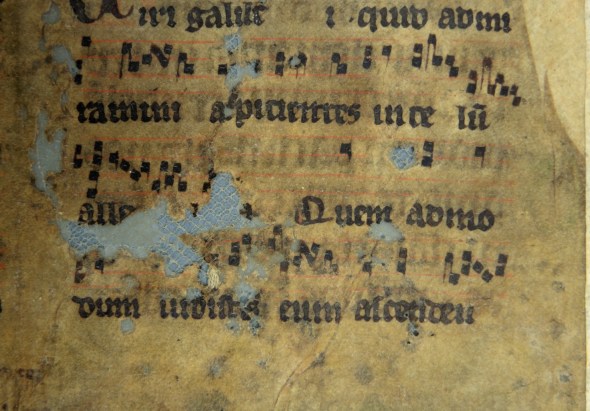 Viri galilei quid admi
ramini aspicientes in ce lū
alle Quem admo
dum uidistis eum ascenden